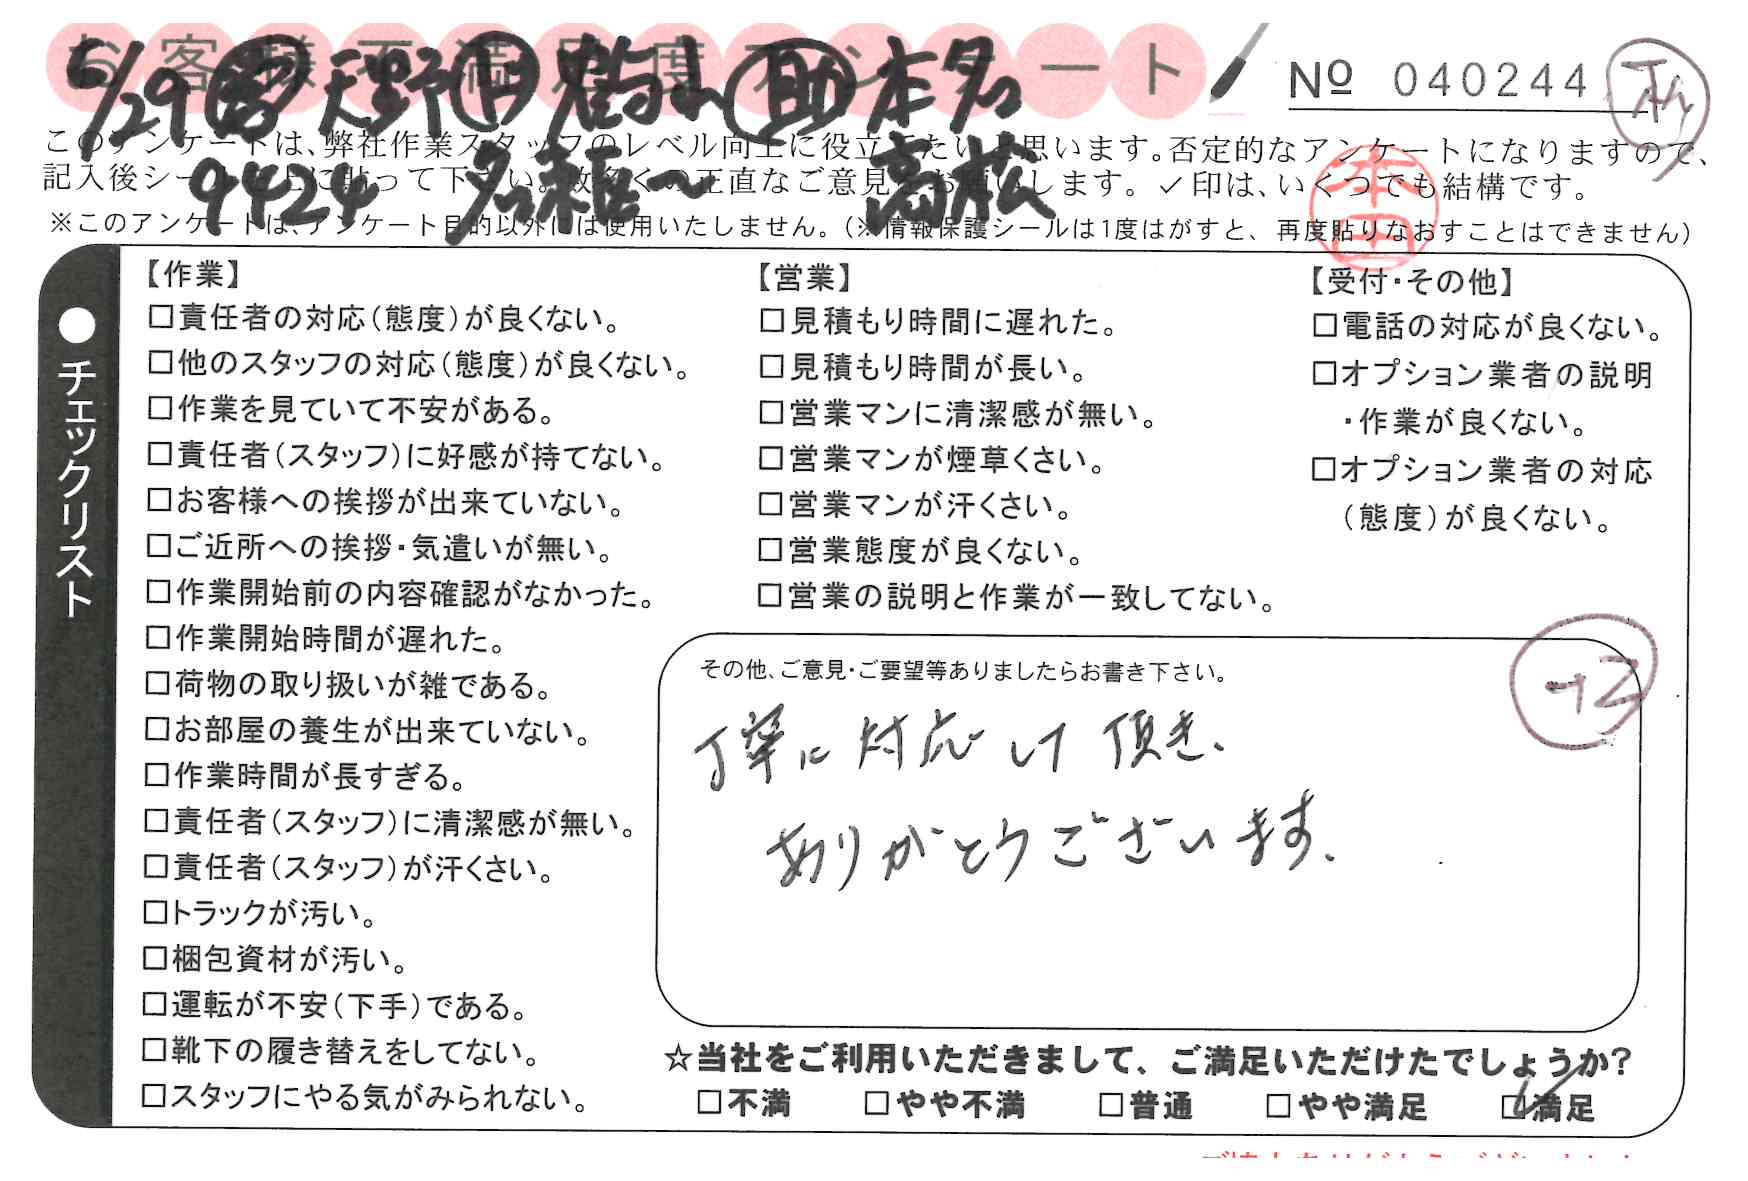 お客様不満足度アンケート
№ 040244
6/29 営 天野 助 本名
9424 高松
このアンケートは、弊社作業スタッフのレベル向上に役立てたいと思います。否定的なアンケートになりますので、
記入後シールを上に貼って下さい。数多くの正直なご意見をお願いします。✓印は、いくつでも結構です。
本田
※このアンケートは、アンケート目的以外には使用いたしません。(※情報保護シールは1度はがすと、再度貼りなおすことはできません)
●チェックリスト
【作業】
□責任者の対応(態度)が良くない。
□他のスタッフの対応(態度)が良くない。
□作業を見ていて不安がある。
□責任者(スタッフ)に好感が持てない。
□お客様への挨拶が出来ていない。
□ご近所への挨拶・気遣いが無い。
□作業開始前の内容確認がなかった。
□作業開始時間が遅れた。
□荷物の取り扱いが雑である。
□お部屋の養生が出来ていない。
□作業時間が長すぎる。
□責任者(スタッフ)に清潔感が無い。
□責任者(スタッフ)が汗くさい。
□トラックが汚い。
□梱包資材が汚い。
□運転が不安(下手)である。
□靴下の履き替えをしてない。
□スタッフにやる気がみられない。
【営業】
□見積もり時間に遅れた。
□見積もり時間が長い。
□営業マンに清潔感が無い。
□営業マンが煙草くさい。
□営業マンが汗くさい。
□営業態度が良くない。
□営業の説明と作業が一致してない。
【受付・その他】
□電話の対応が良くない。
□オプション業者の説明
・作業が良くない。
□オプション業者の対応
(態度)が良くない。
その他、ご意見・ご要望等ありましたらお書き下さい。
+2
丁寧に対応して頂き、
ありがとうございます。
☆当社をご利用いただきまして、ご満足いただけたでしょうか?
□不満 □やや不満 □普通 □やや満足 ☑満足